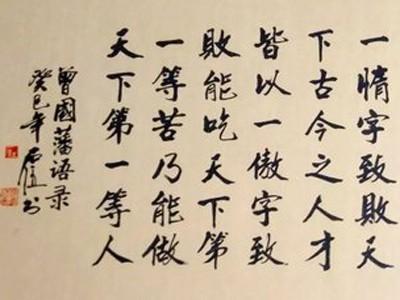 一惰字致敗天
下古今之人才
皆以一傲字致
敗能吃天下第
一等苦乃能做
天下第一等人
曾國藩语录
癸巳年